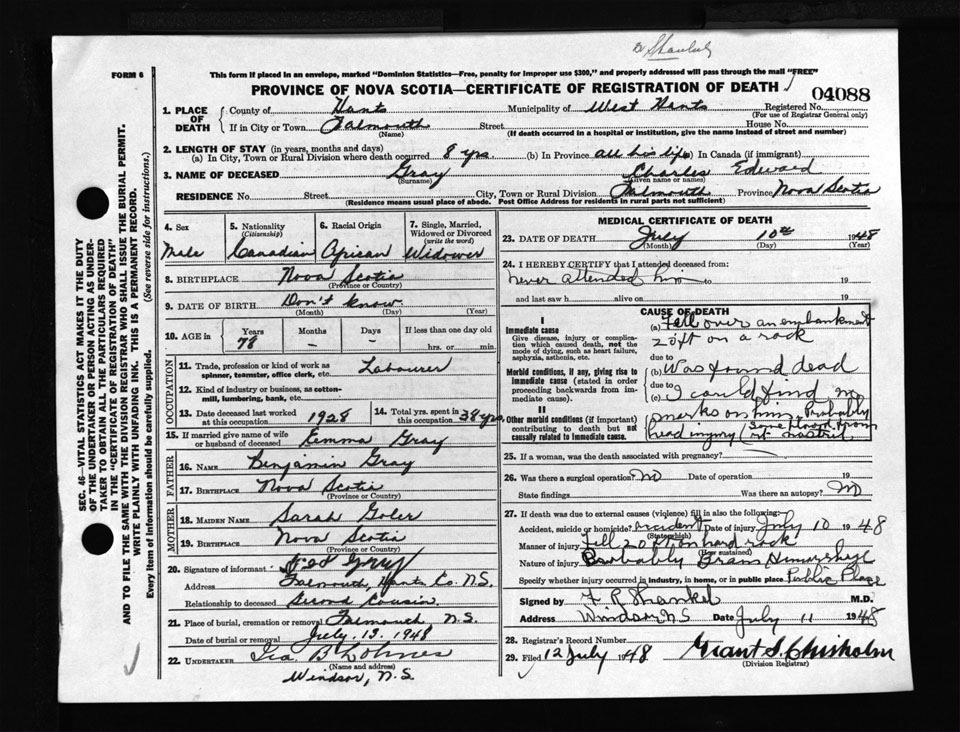 Dr Shankel
FORM 6
This form if placed in an envelope, marked "Dominion Statistics—Free, penalty for improper use $300," and properly addressed will pass through the mail "FREE"
PROVINCE OF NOVA SCOTIA—CERTIFICATE OF REGISTRATION OF DEATH
04088
1. PLACE OF DEATH
County of Hants Municipality of West Hants Registered No.
(For use of Registrar General only)
If in City or Town Falmouth Street House No.
(Name) (If death occurred in a hospital or institution, give the name instead of street and number)
2. LENGTH OF STAY (in years, months and days)
(a) In City, Town or Rural Division where death occurred 8 yrs. (b) In Province all his life (c) In Canada (if immigrant)
3. NAME OF DECEASED Gray Charles Edward
(Surname) (Given name or names)
RESIDENCE No. Street City, Town or Rural Division Falmouth Province Nova Scotia
(Residence means usual place of abode. Post Office Address for residents in rural parts not sufficient)
4. Sex
Male
5. Nationality
(Citizenship)
Canadian
6. Racial Origin
African
7. Single, Married, Widowed or Divorced
(write the word)
Widower
8. BIRTHPLACE Nova Scotia
(Province or Country)
9. DATE OF BIRTH Don't know
(Month) (Day) (Year)
10. AGE in Years Months Days If less than one day old
78 - - hrs. or min.
OCCUPATION
11. Trade, profession or kind of work as spinner, teamster, office clerk, etc. Labourer
12. Kind of industry or business, as cotton-mill, lumbering, bank, etc.
13. Date deceased last worked at this occupation 1928
14. Total yrs. spent in this occupation 38 yrs.
15. If married give name of wife or husband of deceased Emma Gray
FATHER
16. NAME Benjamin Gray
17. BIRTHPLACE Nova Scotia
(Province or Country)
MOTHER
18. MAIDEN NAME Sarah Goler
19. BIRTHPLACE Nova Scotia
(Province or Country)
20. Signature of informant Gray
Address Falmouth, Hants Co. N.S.
Relationship to deceased Second Cousin.
21. Place of burial, cremation or removal Falmouth, N.S.
Date of burial or removal July. 13. 1948
22. UNDERTAKER Ira B Lohnes
(Name and address)
Windsor, N.S.
MEDICAL CERTIFICATE OF DEATH
23. DATE OF DEATH July 10th 1948
(Month) (Day) (Year)
24. I HEREBY CERTIFY that I attended deceased from:
never attended him to 19
and last saw h alive on 19
CAUSE OF DEATH
I
Immediate cause
Give disease, injury or complication which caused death, not the mode of dying, such as heart failure, asphyxia, asthenia, etc.
(a) Fell over an embankment
20 ft on a rock
due to
Morbid conditions, if any, giving rise to immediate cause (stated in order proceeding backwards from immediate cause).
(b) Was found dead
due to
(c) I could find no
II
Other morbid conditions (if important) contributing to death but not causally related to immediate cause.
marks on him. Probably
head injury (some blood from rt nostril.
25. If a woman, was the death associated with pregnancy?
26. Was there a surgical operation? no Date of operation 19
State findings Was there an autopsy? no
27. If death was due to external causes (violence) fill in also the following:
Accident, suicide or homicide? accident Date of injury July 10 1948
(State which)
Manner of injury Fell 20 ft on hard rock
(How sustained)
Nature of injury Probably Brain Hemorrhage
Specify whether injury occurred in industry, in home, or in public place Public Place
Signed by F R Shankel M.D.
Address Windsor NS Date July 11 1948
28. Registrar's Record Number
29. Filed 12 July 1948 Grant S. Chisholm
(Division Registrar)
SEC. 46—VITAL STATISTICS ACT MAKES IT THE DUTY
OF THE UNDERTAKER OR PERSON ACTING AS UNDER-
TAKER TO OBTAIN ALL THE PARTICULARS REQUIRED
IN THE "CERTIFICATE OF REGISTRATION OF DEATH"
AND TO FILE THE SAME WITH THE DIVISION REGISTRAR WHO SHALL ISSUE THE BURIAL PERMIT.
WRITE PLAINLY WITH UNFADING INK. THIS IS A PERMANENT RECORD.
Every item of information should be carefully supplied. (See reverse side for instructions.)